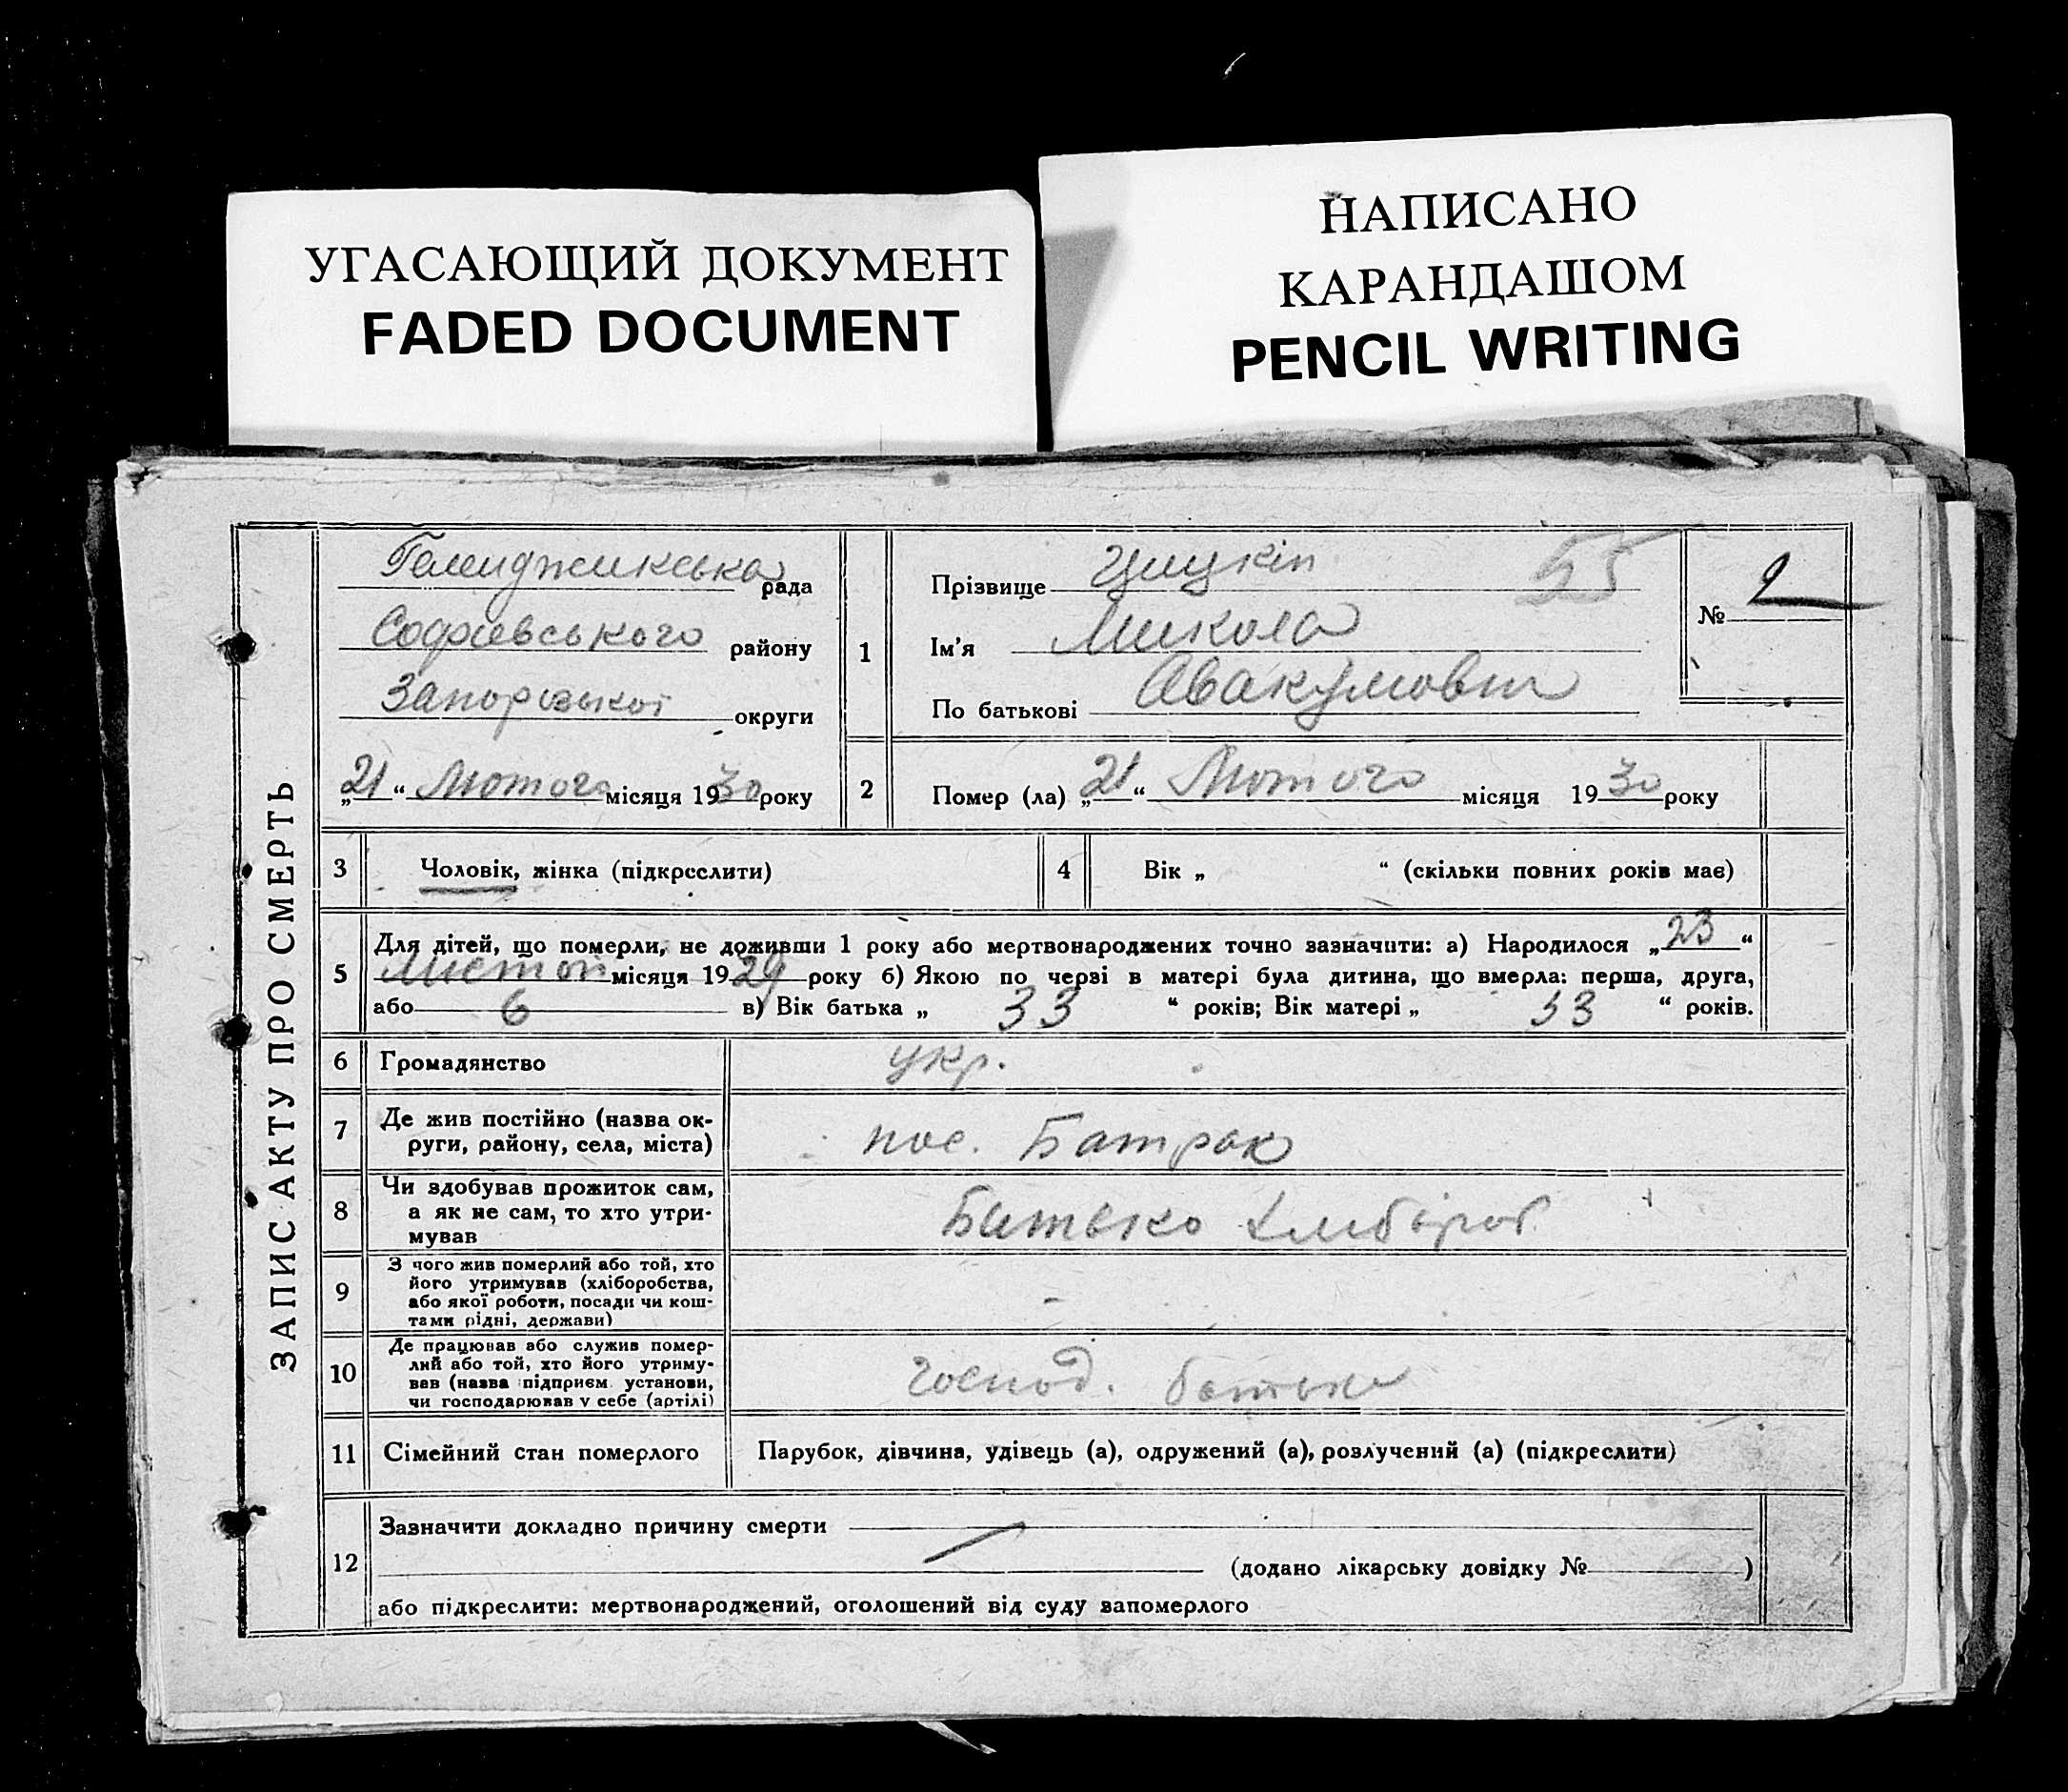 УГАСАЮЩИЙ ДОКУМЕНТ
FADED DOCUMENT
НАПИСАНО
КАРАНДАШОМ
PENCIL WRITING
ЗАПИС АКТУ ПРО СМЕРТЬ
рада
Софіевського району
Запорізької округи
„21“ Лютого місяця 1930 року
1
Прізвище 55
Ім'я Микола
По батькові Авакумович
№ 2
2
Помер (ла) „21“ Лютого місяця 1930 року
3
Чоловік, жінка (підкреслити)
4
Вік „ “ (скільки повних років має)
5
Для дітей, що померли, не доживши 1 року або мертвонароджених точно зазначити: а) Народилося „23“
Листоп місяця 1929 року б) Якою по черзі в матері була дитина, що вмерла: перша, друга,
або 6 в) Вік батька „ 33 “ років; Вік матері „ 33 “ років.
6
Громадянство укр.
7
Де жив постійно (назва ок-
руги, району, села, міста)
пос. Батрак
8
Чи здобував прожиток сам,
а як не сам, то хто утри-
мував
Батько хлібороб
9
З чого жив померлий або той, хто
його утримував (хліборобства,
або якої роботи, посади чи кош-
тами рідні, держави)
-
10
Де працював або служив помер-
лий або той, хто його утриму-
вав (назва підприєм. установи,
чи господарював у себе (артілі)
господ. батька
11
Сімейний стан померлого
Парубок, дівчина, удівець (а), одружений (а), розлучений (а) (підкреслити)
12
Зазначити докладно причину смерти
(додано лікарську довідку № )
або підкреслити: мертвонароджений, оголошений від суду запомерлого